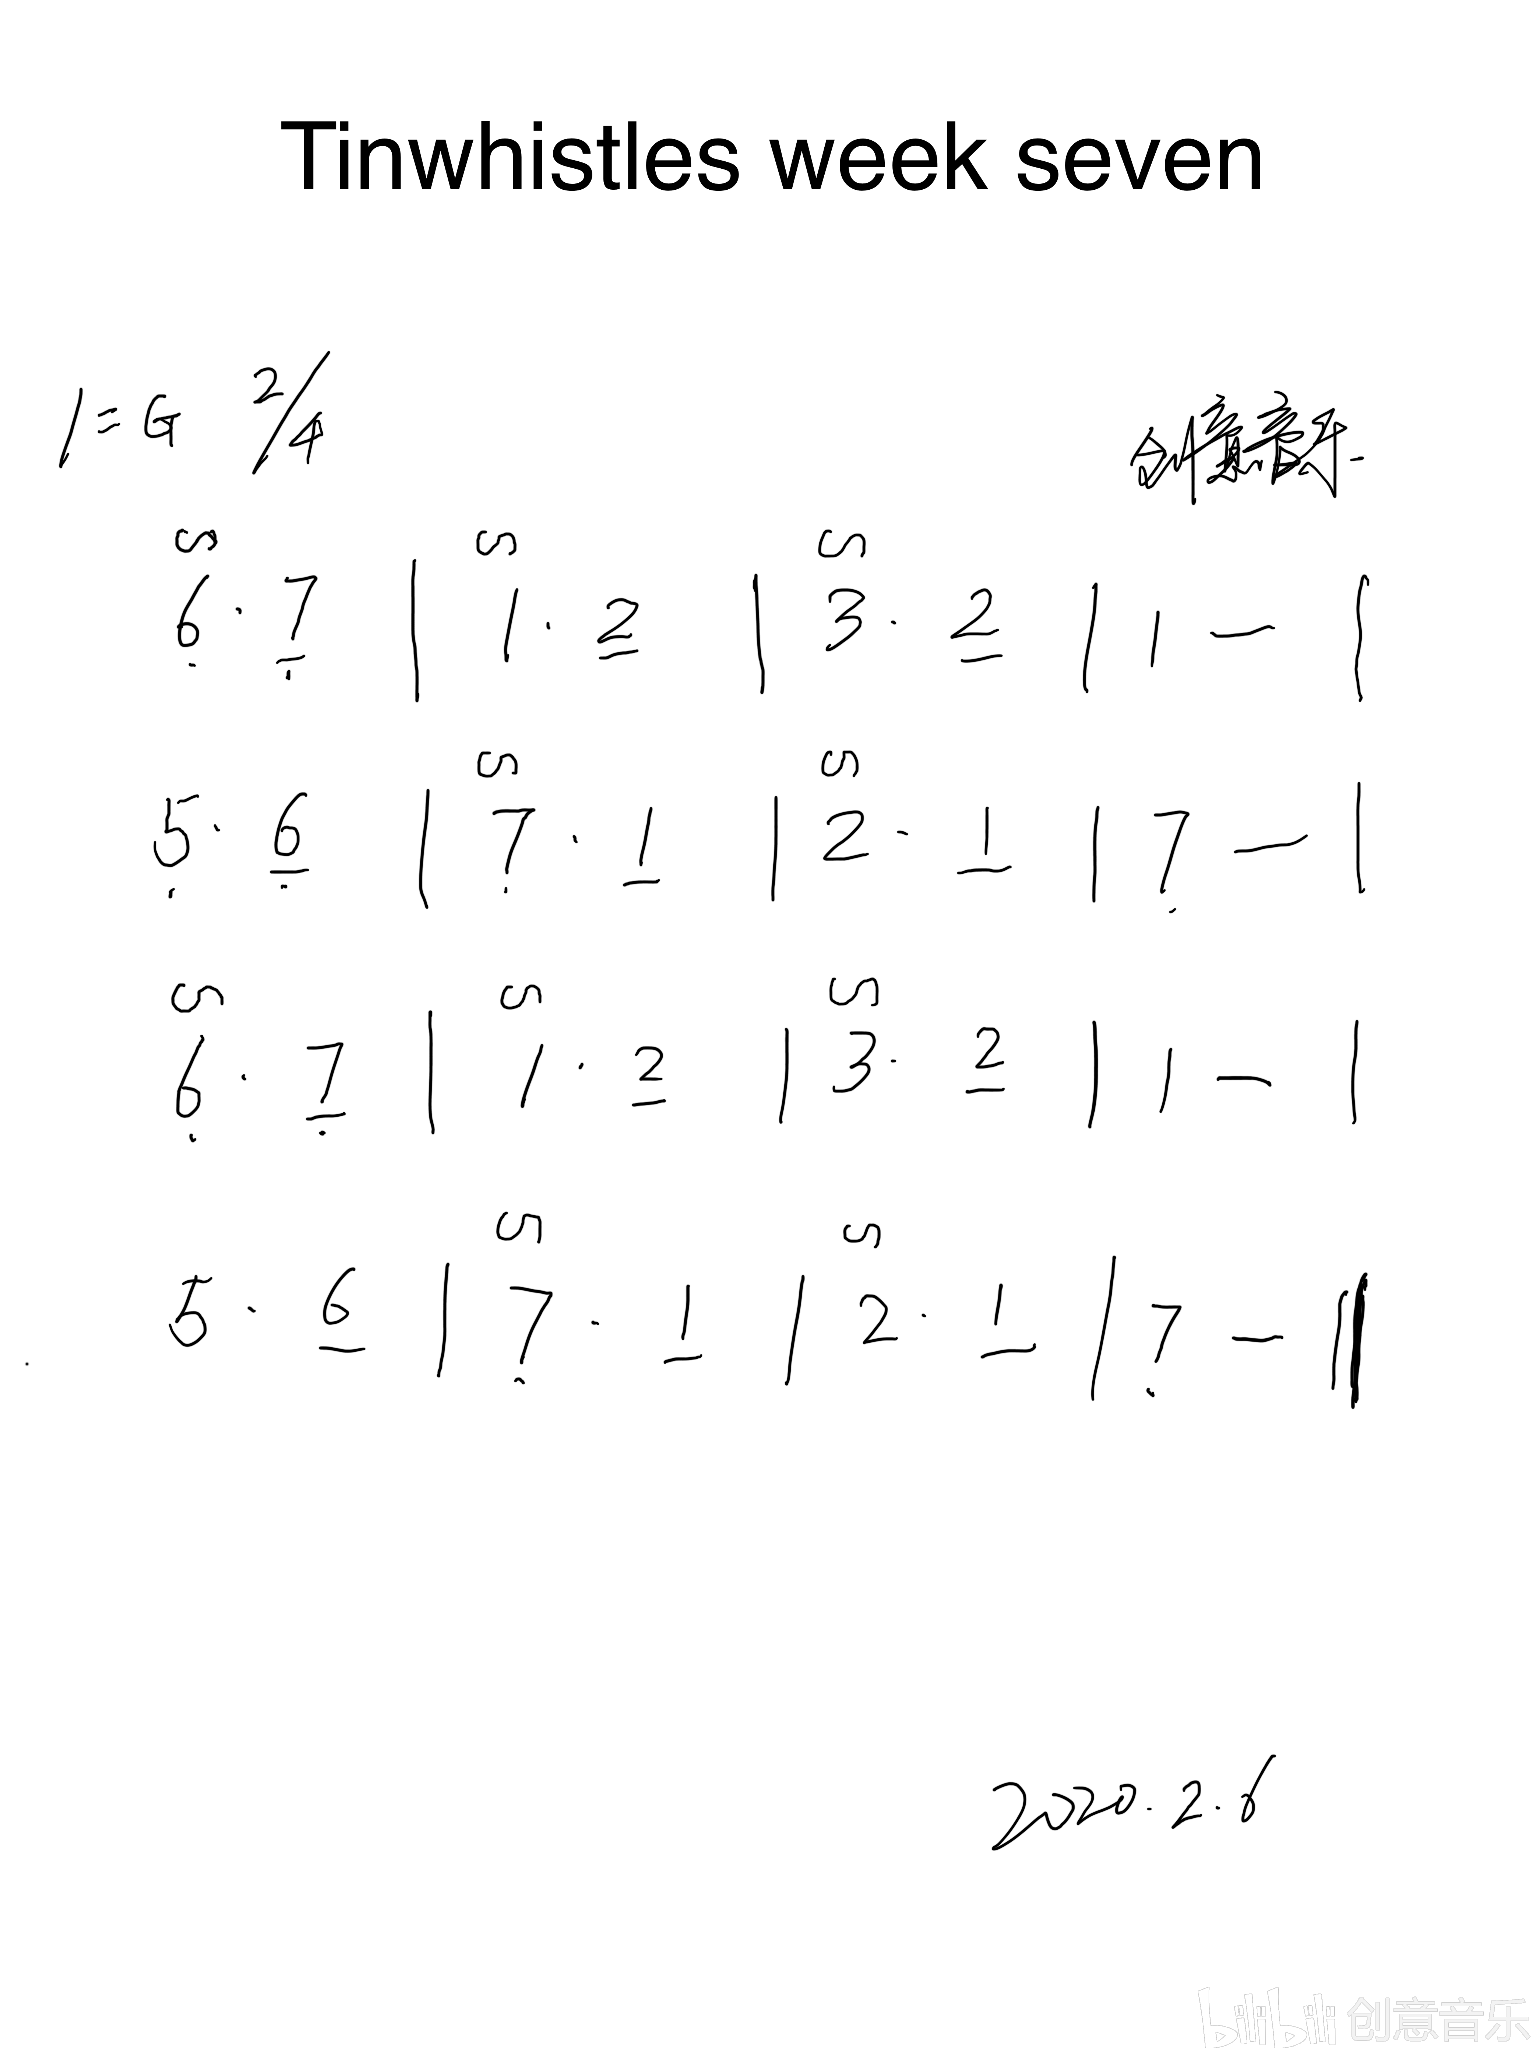 Tinwhistles week seven
1=G 2/4
创意音乐
S S S
6̣· 7̣ | 1· 2 | 3· 2 | 1 — |
S S
5̣· 6̣ | 7̣· 1 | 2· 1 | 7̣ — |
S S S
6̣· 7̣ | 1· 2 | 3· 2 | 1 — |
S S
5· 6 | 7̣· 1 | 2· 1 | 7̣ — ‖
2020.2.6
bilibili 创意音乐